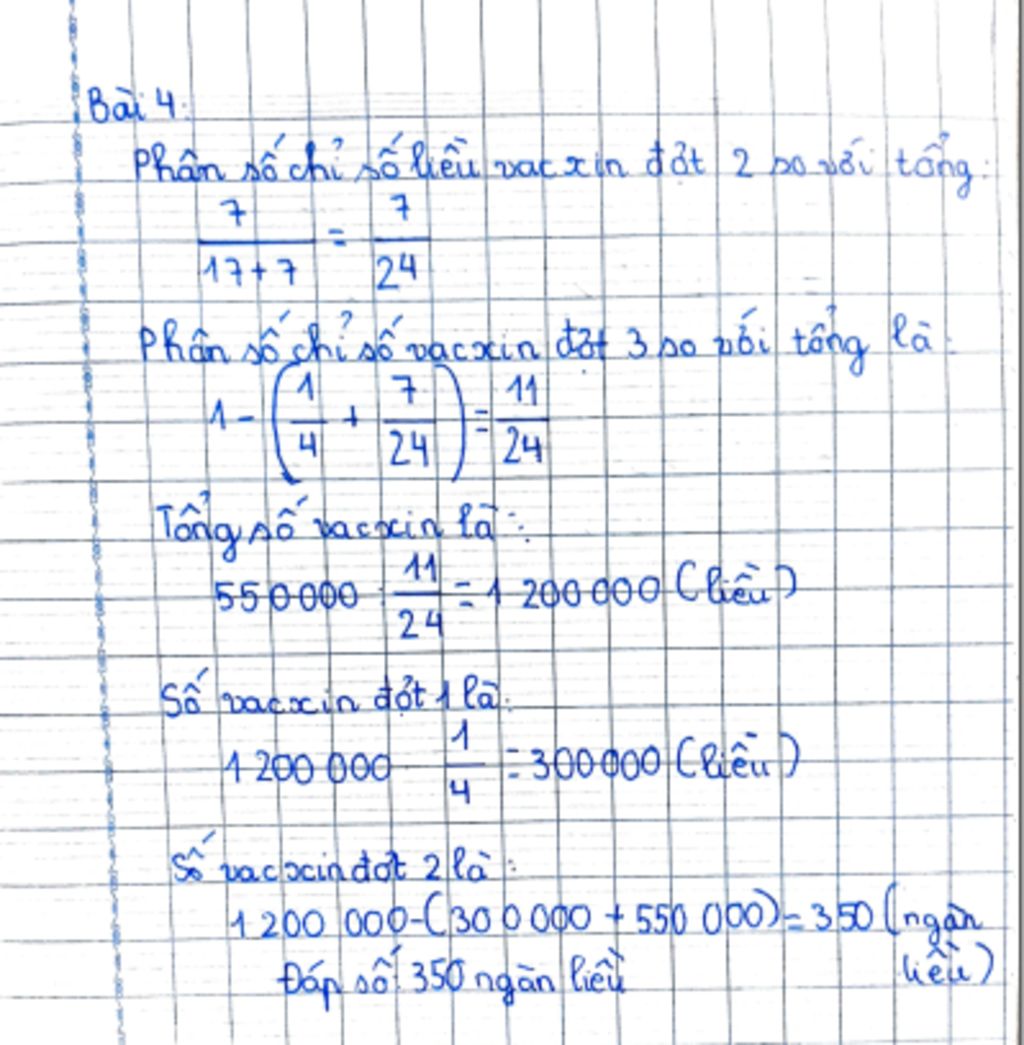 Bài 4:
Phân số chỉ số liều vacxin đợt 2 so với tổng:
7/(17+7) = 7/24
Phân số chỉ số vacxin đợt 3 so với tổng là:
1 - (1/4 + 7/24) = 11/24
Tổng số vacxin là:
550 000 : 11/24 = 1 200 000 (liều)
Số vacxin đợt 1 là:
1 200 000 1/4 = 300 000 (liều)
Số vacxin đợt 2 là:
1 200 000 - (300 000 + 550 000) = 350 (ngàn
liều)
Đáp số: 350 ngàn liều